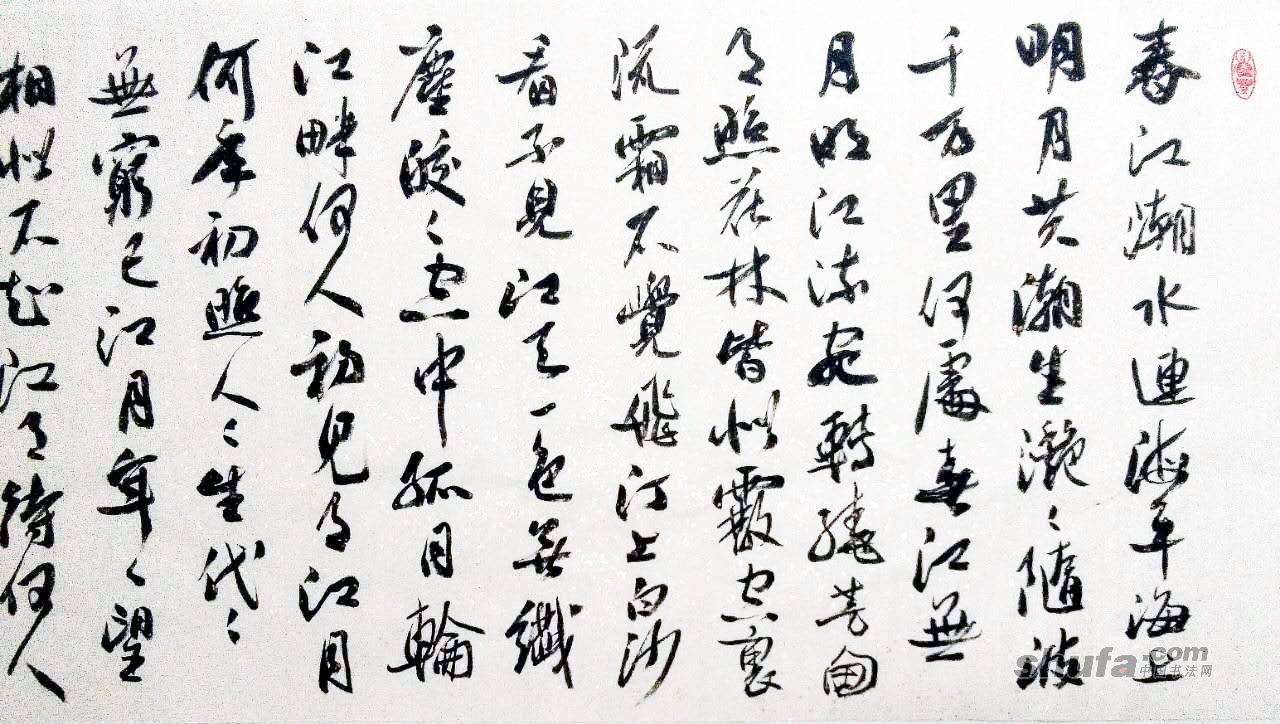 春江潮水連海平海上
明月共潮生灩〻隨波
千万里何處春江無
月明江流宛轉繞芳甸
月照花林皆似霰空裏
流霜不覺飛汀上白沙
看不見江天一色無纖
塵皎〻空中孤月輪
江畔何人初見月江月
何年初照人〻生代〻
無窮已江月年〻望
相似不知江月待何人
shufa.com
中国书法网